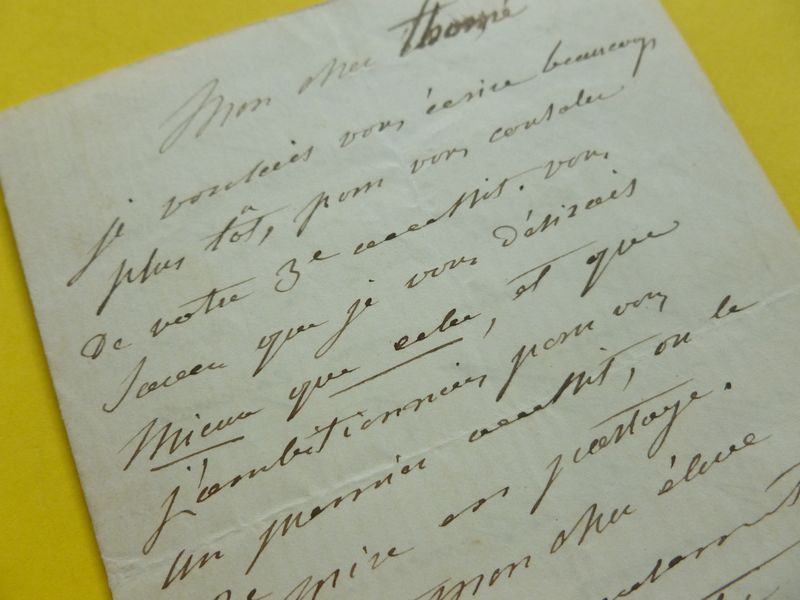 Mon cher Thomé
je voulais vous écrire beaucoup
plus tôt, pour vous consoler
de votre 3e accessit. vous
savez que je vous désirais
mieux que cela, et que
j'ambitionnais pour vous
un premier accessit, ou le
prix en partage.
mon cher élève